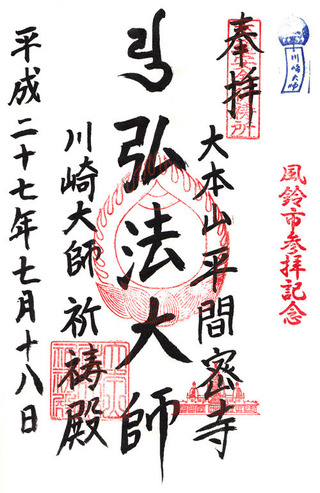 川崎大師
風鈴市参拝記念
奉拝
大本山平間密寺
弘法大師
川崎大師祈祷殿
平成二十七年七月十八日